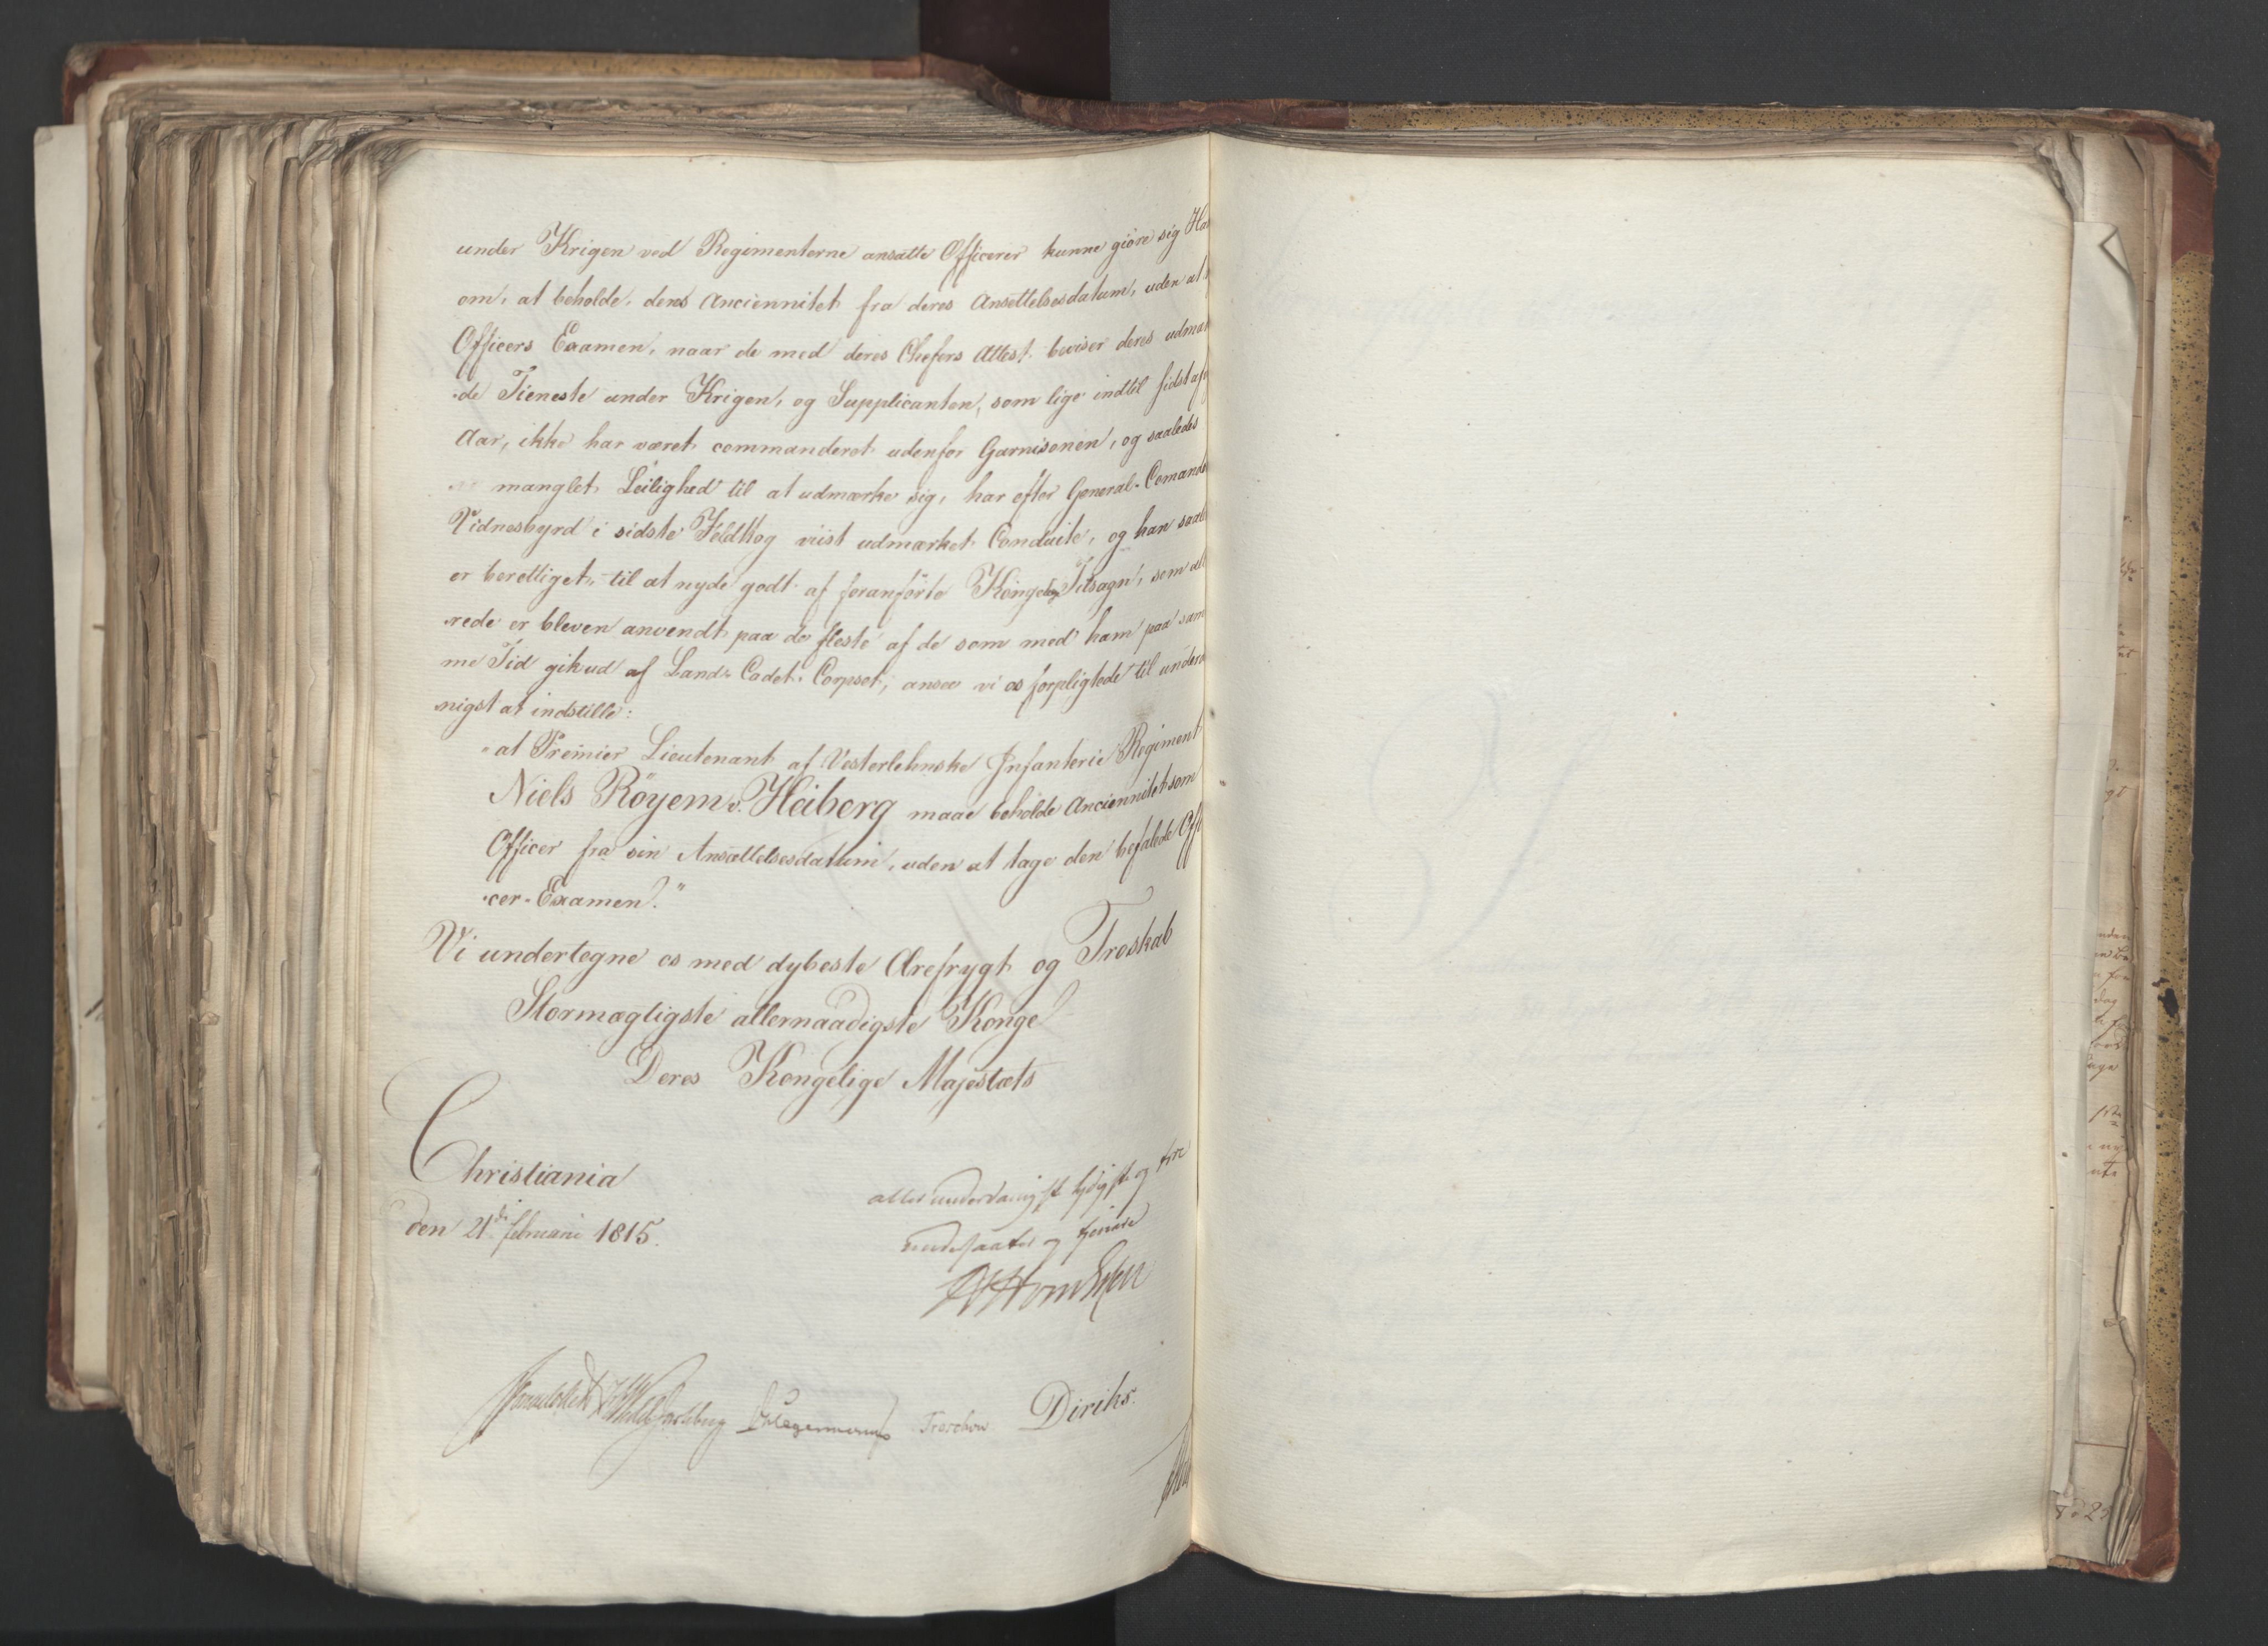 under Krigen ved Regimenterne ansatte Officerer kunne giöre sig Haa
om, at beholde deres Anciennitet fra deres Ansettelsesdatum, uden at
Officers Examen, naar de med deres Chefers Attest beviser deres udmær
de Tieneste under Krigen, og Supplicanten, som lige indtil sidst
Aar, ikke har været commanderet udenfor Garnisonen, og saaledes
manglet Leilighed til at udmærke sig, har efter General-Comando
Vidnesbyrd i sidste Feldttog viist udmærket Conduite, og han saal
er berettiget til at nyde godt af foranförte Kongelig Tilsagn, som al
rede er bleven anvendt paa de fleste af de som med ham paa sam
me Tid gik ud af Land-Cadet-Corpset; ansee vi os forpligtede til under
nigst at indstille:
"at Premier Lieutenant af Vesterlehnske Infanterie Regiment
Niels Röyem v. Heiberg maae beholde Anciennitet som
Officer fra sin Ansættelsesdatum, uden at tage den befalede Offi
cer-Examen."
Vi undertegne os med dybeste Ærefrygt og Troskab
Stormægtigste allernaadigste Konge!
Deres Kongelige Majestæts
Christiania
den 21de februarii 1815.
allerunderdanigste lydigste og troe
undersaatter og tienere
Diriks.
Treschow